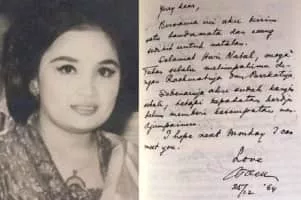 Yurg dear,
Bersama ini aku kirim
satu tandamata dan uang
sedikit untuk natalan.
Selamat Hari Natal, moga2
Tuhan selalu melimpahimu de-
ngan Rachmatnya dan Berkatnya
Sebenarnja aku sudah kangen
sekali, tetapi kepadatan kerdja
belum memberi kesempatan me-
ngjumpaimu.
I hope next Monday I can
meet you!
Love
25/12 '64